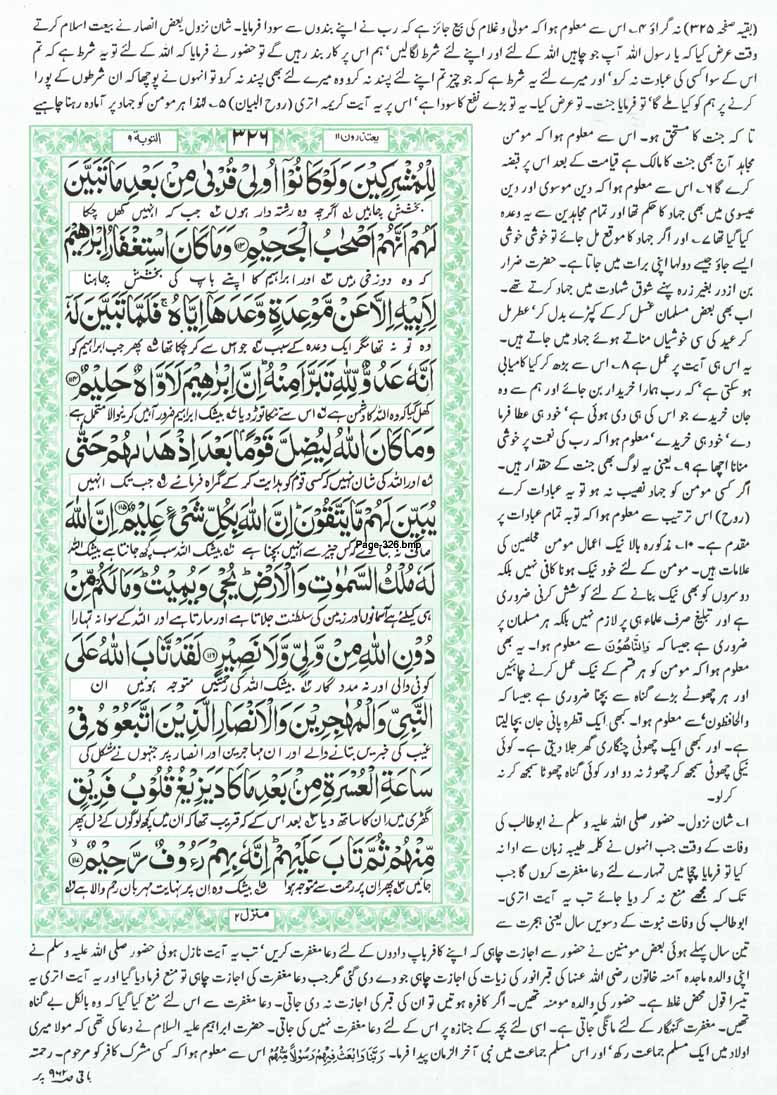 (بقیہ صفحہ ۳۲۵) نہ گراؤ ۴۔ اس سے معلوم ہوا کہ مولیٰ و غلام کی بیع جائز ہے کہ رب نے اپنے بندوں سے سودا فرمایا۔ شان نزول بعض انصار نے بیعت اسلام کرتے
وقت عرض کیا کہ یا رسول اللہ آپ جو چاہیں اللہ کے لئے اور اپنے لئے شرط لگالیں' ہم اس پر کار بند رہیں گے تو حضور نے فرمایا کہ اللہ کے لئے تو یہ شرط ہے کہ تم
اس کے سوا کسی کی عبادت نہ کرو' اور میرے لئے یہ شرط ہے کہ جو چیز تم اپنے لئے پسند نہ کرو وہ میرے لئے بھی پسند نہ کرو تو انہوں نے پوچھا کہ ان شرطوں کے پورا
کرنے پر ہم کو کیا ملے گا' تو فرمایا جنت۔ تو عرض کیا۔ یہ تو بڑے نفع کا سودا ہے' اس پر یہ آیت کریمہ اتری (روح البیان) ۵۔ لہٰذا ہر مومن کو جہاد پر آمادہ رہنا چاہیے
یعتذرون ۱۱
۳۲۶
التوبۃ ۹
لِلْمُشْرِكِيْنَ وَلَوْ كَانُوْٓا اُولِيْ قُرْبٰى مِنْۢ بَعْدِ مَا تَبَيَّنَ
بخشش چاہیں اگرچہ وہ رشتہ دار ہوں جب کہ انہیں کھل چکا
لَهُمْ اَنَّهُمْ اَصْحٰبُ الْجَحِيْمِ ۱۱۳ وَمَا كَانَ اسْتِغْفَارُ اِبْرٰهِيْمَ
کہ وہ دوزخی ہیں اور ابراہیم کا اپنے باپ کی بخشش چاہنا
لِاَبِيْهِ اِلَّا عَنْ مَّوْعِدَةٍ وَّعَدَهَآ اِيَّاهُ ۚ فَلَمَّا تَبَيَّنَ لَهٗٓ
وہ تو نہ تھا مگر ایک وعدہ کے سبب جو اس سے کر چکا تھا پھر جب ابراہیم کو
اَنَّهٗ عَدُوٌّ لِّلّٰهِ تَبَرَّاَ مِنْهُ ۭ اِنَّ اِبْرٰهِيْمَ لَاَوَّاهٌ حَلِيْمٌ ۱۱۴
کھل گیا کہ وہ اللہ کا دشمن ہے اس سے تنکا توڑ دیا بیشک ابراہیم ضرور آہیں کرنیوالا متحمل ہے
وَمَا كَانَ اللّٰهُ لِيُضِلَّ قَوْمًۢا بَعْدَ اِذْ هَدٰىهُمْ حَتّٰى
اور اللہ کی شان نہیں کہ کسی قوم کو ہدایت کر کے گمراہ فرمائے جب تک انہیں
يُبَيِّنَ لَهُمْ مَّا يَتَّقُوْنَ ۭ اِنَّ اللّٰهَ بِكُلِّ شَيْءٍ عَلِيْمٌ ۱۱۵ اِنَّ اللّٰهَ
صاف نہ بتا دے کس چیز سے انہیں بچنا ہے بیشک اللہ سب کچھ جانتا ہے بیشک اللہ
Page-326.bmp
لَهٗ مُلْكُ السَّمٰوٰتِ وَالْاَرْضِ ۭ يُحْيٖ وَيُمِيْتُ ۭ وَمَا لَكُمْ مِّنْ
ہی کیلئے ہے آسمانوں اور زمین کی سلطنت جلاتا ہے اور مارتا ہے اور اللہ کے سوا نہ تمہارا
دُوْنِ اللّٰهِ مِنْ وَّلِيٍّ وَّلَا نَصِيْرٍ ۱۱۶ لَقَدْ تَّابَ اللّٰهُ عَلَى
کوئی والی اور نہ مددگار بیشک اللہ کی رحمتیں متوجہ ہوئیں ان
النَّبِيِّ وَالْمُهٰجِرِيْنَ وَالْاَنْصَارِ الَّذِيْنَ اتَّبَعُوْهُ فِيْ
غیب کی خبریں بتانے والے اور ان مہاجرین اور انصار پر جنہوں نے مشکل کی
سَاعَةِ الْعُسْرَةِ مِنْۢ بَعْدِ مَا كَادَ يَزِيْغُ قُلُوْبُ فَرِيْقٍ
گھڑی میں ان کا ساتھ دیا بعد اس کے کہ قریب تھا کہ ان میں کچھ لوگوں کے دل پھر
مِّنْهُمْ ثُمَّ تَابَ عَلَيْهِمْ ۭ اِنَّهٗ بِهِمْ رَءُوْفٌ رَّحِيْمٌ ۱۱۷
جائیں پھر ان پر رحمت سے متوجہ ہوا بیشک وہ ان پر نہایت مہربان رحم والا ہے
منزل ۲
تا کہ جنت کا مستحق ہو۔ اس سے معلوم ہوا کہ مومن
مجاہد آج بھی جنت کا مالک ہے قیامت کے بعد اس پر قبضہ
کرے گا ۶۔ اس سے معلوم ہوا کہ دین موسوی اور دین
عیسوی میں بھی جہاد کا حکم تھا اور تمام مجاہدین سے یہ وعدہ
کیا گیا تھا ۷۔ اور اگر جہاد کا موقع مل جائے تو خوشی خوشی
ایسے جاؤ جیسے دولہا اپنی برات میں جاتا ہے۔ حضرت ضرار
بن ازدر بغیر زرہ پہنے شوق شہادت میں جہاد کرتے تھے۔
اب بھی بعض مسلمان غسل کر کے کپڑے بدل کر' عطر مل
کر عید کی سی خوشیاں مناتے ہوئے جہاد میں جاتے ہیں۔
یہ اس ہی آیت پر عمل ہے ۸۔ اس سے بڑھ کر کیا کامیابی
ہو سکتی ہے' کہ رب ہمارا خریدار بن جائے اور ہم سے وہ
جان خریدے جو اس کی ہی دی ہوئی ہے' خود ہی عطا فرما
دے' خود ہی خریدے' معلوم ہوا کہ رب کی نعمت پر خوشی
منانا اچھا ہے ۹۔ یعنی یہ لوگ بھی جنت کے حقدار ہیں۔
اگر کسی مومن کو جہاد نصیب نہ ہو تو یہ عبادات کرے
(روح) اس ترتیب سے معلوم ہوا کہ توبہ تمام عبادات پر
مقدم ہے۔ ۱۰۔ مذکورہ بالا نیک اعمال مومن مخلصین کی
علامات ہیں۔ مومن کے لئے خود نیک ہونا کافی نہیں بلکہ
دوسروں کو بھی نیک بنانے کے لئے کوشش کرنی ضروری
ہے اور تبلیغ صرف علماء ہی پر لازم نہیں بلکہ ہر مسلمان پر
ضروری ہے جیسا کہ وَالنَّاهُوْنَ سے معلوم ہوا۔ یہ بھی
معلوم ہوا کہ مومن کو ہر قسم کے نیک عمل کرنے چاہئیں
اور ہر چھوٹے بڑے گناہ سے بچنا ضروری ہے جیسا کہ
والحافظون' سے معلوم ہوا۔ کبھی ایک قطرہ پانی جان بچا لیتا
ہے۔ اور کبھی ایک چھوٹی چنگاری گھر جلا دیتی ہے۔ کوئی
نیکی چھوٹی سمجھ کر چھوڑ نہ دو اور کوئی گناہ چھوٹا سمجھ کر نہ
کر لو۔
۱۔ شان نزول۔ حضور صلی اللہ علیہ وسلم نے ابوطالب کی
وفات کے وقت جب انہوں نے کلمہ طیبہ زبان سے ادا نہ
کیا تو فرمایا چچا میں تمہارے لئے دعا مغفرت کروں گا جب
تک کہ مجھے منع نہ کر دیا جائے تب یہ آیت اتری۔
ابوطالب کی وفات نبوت کے دسویں سال یعنی ہجرت سے
تین سال پہلے ہوئی بعض مومنین نے حضور سے اجازت چاہی کہ اپنے کافر باپ دادوں کے لئے دعا مغفرت کریں' تب یہ آیت نازل ہوئی حضور صلی اللہ علیہ وسلم نے
اپنی والدہ ماجدہ آمنہ خاتون رضی اللہ عنہا کی قبر انور کی زیارت کی اجازت چاہی جو دے دی گئی مگر جب دعا مغفرت کی اجازت چاہی تو منع فرما دیا گیا اور یہ آیت اتری یہ
تیسرا قول محض غلط ہے۔ حضور کی والدہ مومنہ تھیں۔ اگر کافرہ ہوتیں تو ان کی قبر کی اجازت نہ دی جاتی۔ دعا مغفرت سے اس لئے منع کیا گیا کہ وہ بالکل بے گناہ
تھیں۔ مغفرت گنہگار کے لئے مانگی جاتی ہے۔ اسی لئے بچہ کے جنازہ پر اس کے لئے دعا مغفرت نہیں کی جاتی۔ حضرت ابراہیم علیہ السلام نے دعا کی تھی کہ مولا میری
اولاد میں ایک مسلم جماعت رکھ' اور اس مسلم جماعت میں نبی آخر الزمان پیدا فرما۔ رَبَّنَا وَابْعَثْ فِيْهِمْ رَسُوْلًا مِّنْهُمْ اس سے معلوم ہوا کہ کسی مشرک کافر کو مرحوم۔ رحمتہ
باقی صفحہ ۹۶۲ پر